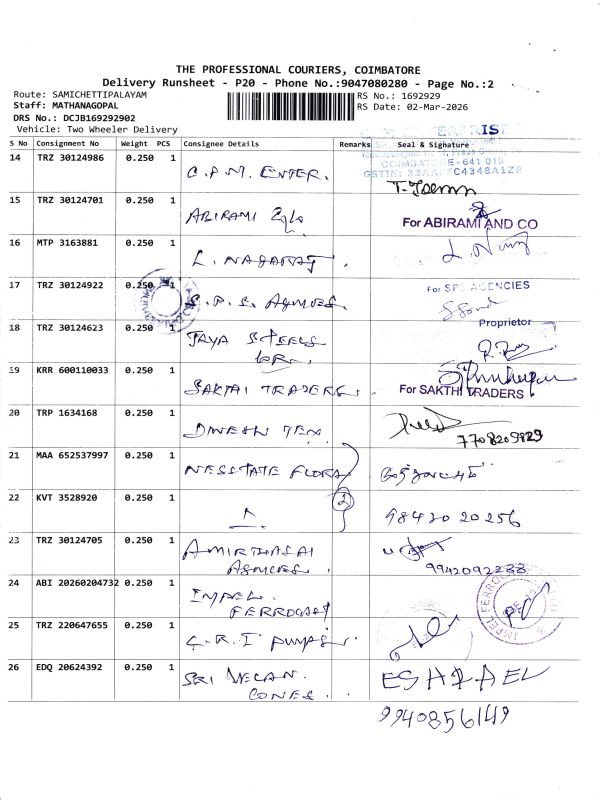 THE PROFESSIONAL COURIERS, COIMBATORE
Delivery Runsheet - P20 - Phone No.:9047080280 - Page No.:2
Route: SAMICHETTIPALAYAM RS No.: 1692929
Staff: MATHANAGOPAL RS Date: 02-Mar-2026
DRS No.: DCJB169292902
Vehicle: Two Wheeler Delivery
S No Consignment No Weight PCS Consignee Details Remarks Seal & Signature
COIMBATORE - 641 019
14 TRZ 30124986 0.250 1 C.P.M. ENTER.
15 TRZ 30124701 0.250 1 ABIRAMI
For ABIRAMI AND CO
16 MTP 3163881 0.250 1 L. NAGARAJ
17 TRZ 30124922 0.250 1 S.P.S. Agencies.
For SPS AGENCIES
Proprietor
18 TRZ 30124623 0.250 1 JAYA STEELS
19 KRR 600110033 0.250 1 SAKTHI TRADERS.
For SAKTHI TRADERS
20 TRP 1634168 0.250 1 DINESH TEX.
7708209829
21 MAA 652537997 0.250 1 NESSTATE FLORA
22 KVT 3528920 0.250 1 2 98430 20256
23 TRZ 30124705 0.250 1 AMIRTHASAI
AGENCIES.
9942092233
24 ABI 20260204732 0.250 1 IMPEL
FERROCAST
25 TRZ 220647655 0.250 1 C.R.I PUMPS.
26 EDQ 20624392 0.250 1 SRI VELAN
CONES.
9940856149